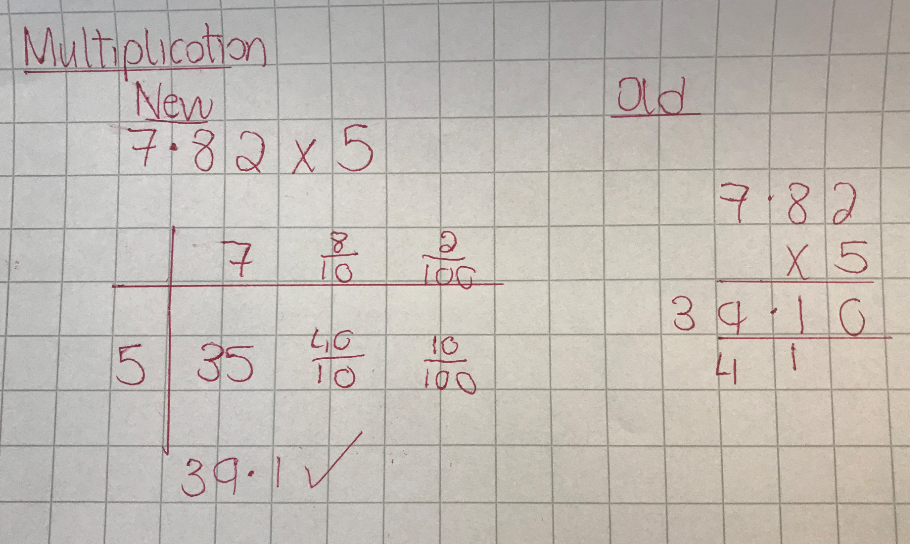 Multiplication
New
7·82 x 5
7 8/10 2/100
5 35 40/10 10/100
39·1 ✓
Old
7·82
x 5
39·10
4 1